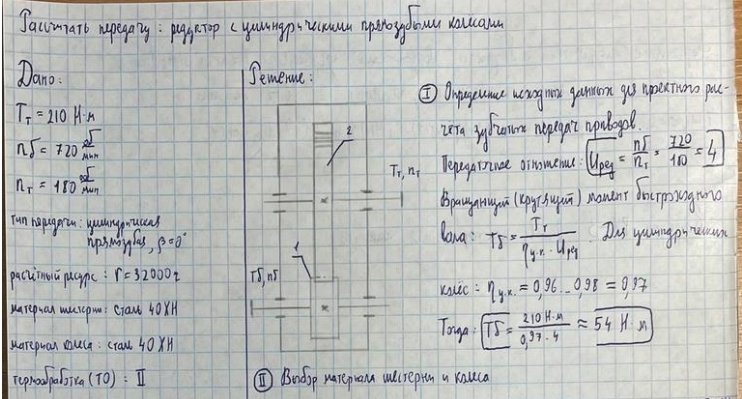 Рассчитать передачу: редуктор с цилиндрическими прямозубыми колесами
Дано:
T_т = 210 Н·м
n_б = 720 об/мин
n_т = 180 об/мин
тип передачи: цилиндрическая
прямозубая, β=0°
расчётный ресурс: r=32000 ч
материал шестерни: сталь 40ХН
материал колеса: сталь 40ХН
термообработка (ТО): II
Решение:
2
T_т, n_т
1
T_б, n_б
I Определение исходных данных для проектного рас-
чета зубчатых передач приводов.
Передаточное отношение: U_ред = n_б/n_т = 720/180 = 4
Вращающий (крутящий) момент быстроходного
вала: T_б = T_т/(η_у.к. · U_ред). Для цилиндрических
колес: η_у.к. = 0,96...0,98 = 0,97
Тогда: T_б = 210 Н·м/(0,97·4) ≈ 54 Н·м
II Выбор материала шестерни и колеса